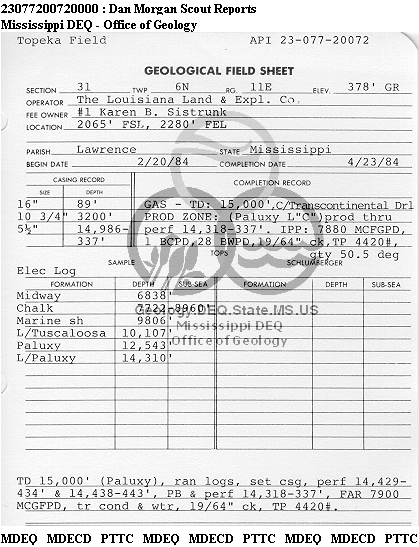 23077200720000 : Dan Morgan Scout Reports
Mississippi DEQ - Office of Geology
Topeka Field API 23-077-20072
GEOLOGICAL FIELD SHEET
SECTION 31 TWP 6N RG. 11E ELEV. 378' GR
OPERATOR The Louisiana Land & Expl. Co.
FEE OWNER #1 Karen B. Sistrunk
LOCATION 2065' FSL, 2280' FEL
PARISH Lawrence STATE Mississippi
BEGIN DATE 2/20/84 COMPLETION DATE 4/23/84
CASING RECORD COMPLETION RECORD
SIZE DEPTH
16" 89' GAS - TD: 15,000', C/Transcontinental Drl
10 3/4" 3200' PROD ZONE: (Paluxy L"C") prod thru
5½" 14,986- perf 14,318-337'. IPP: 7880 MCFGPD,
337' 1 BCPD, 28 BWPD, 19/64" ck, TP 4420#,
TOPS qty 50.5 deg
SAMPLE SCHLUMBERGER
Elec Log
FORMATION DEPTH SUB-SEA FORMATION DEPTH SUB-SEA
Midway 6838'
Chalk 7722-8960'
Marine sh 9806'
L/Tuscaloosa 10,107'
Paluxy 12,543'
L/Paluxy 14,310'
Geology.DEQ.State.MS.US
Mississippi DEQ
Office of Geology
TD 15,000' (Paluxy), ran logs, set csg, perf 14,429-
434' & 14,438-443', PB & perf 14,318-337', FAR 7900
MCGFPD, tr cond & wtr, 19/64" ck, TP 4420#.
MDEQ MDECD PTTC MDEQ MDECD PTTC MDEQ MDECD PTTC